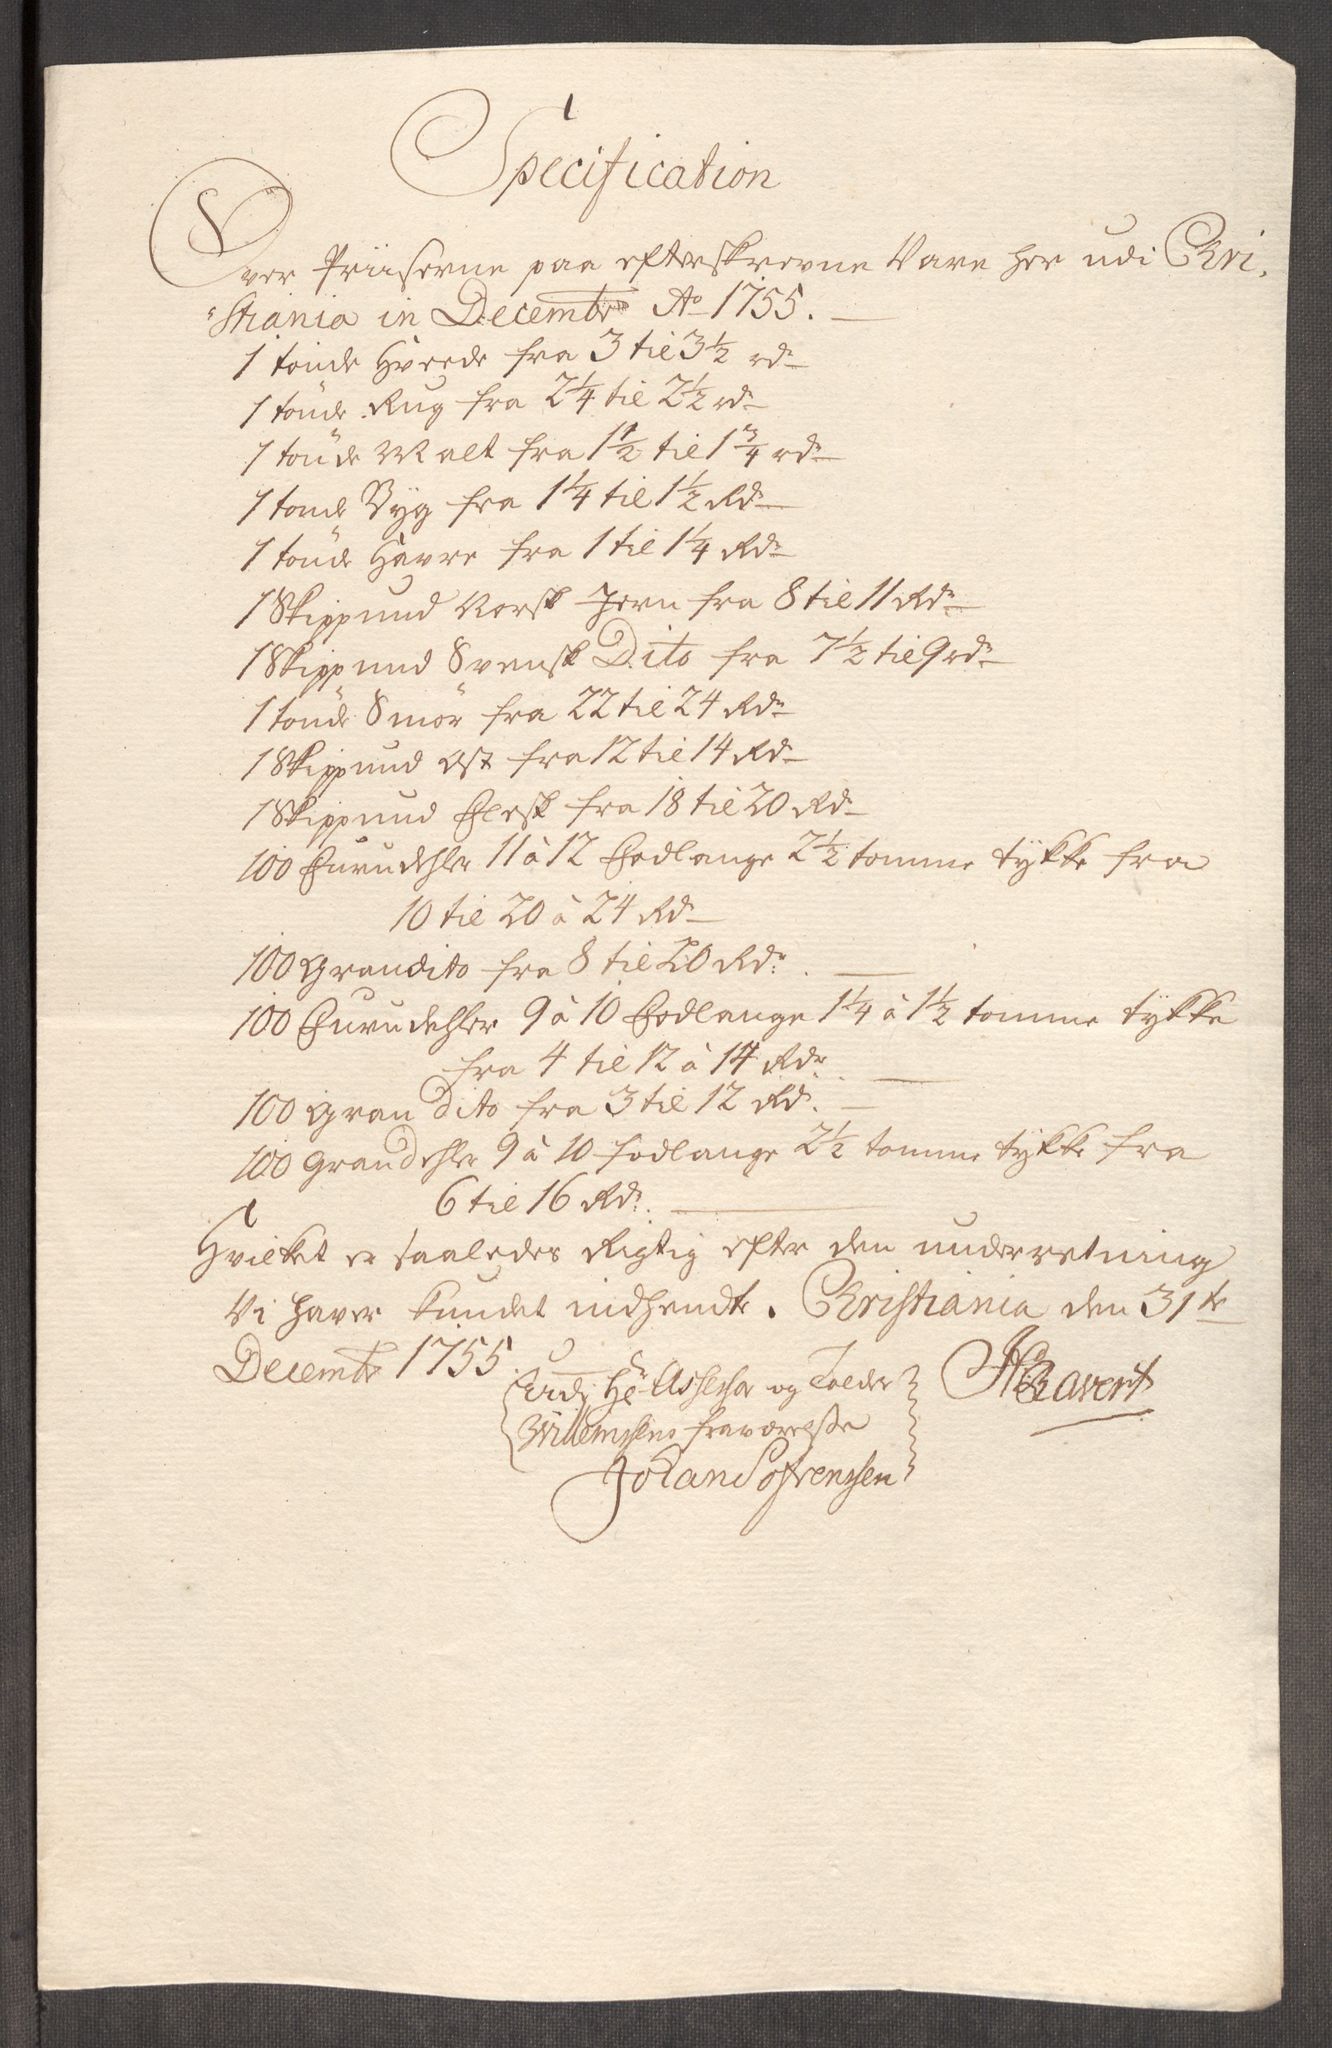 Specification
Over Priiserne paa efterskrevne Vare her udi Chri-
stiania in Decembr Ao 1755.
1 tönde Hveede fra 3 til 3 1/2 rdr
1 tönde Rug fra 2 1/4 til 2 1/2 rdr
1 tönde Malt fra 1 1/2 til 1 3/4 rdr
1 tönde Byg fra 1 1/4 til 1 1/2 Rdr
1 tönde Havre fra 1 til 1 1/4 Rdr
1 Skippund Norsk Jern fra 8 til 11 Rdr
1 Skippund Svensk Dito fra 7 1/2 til 9 rdr
1 tönde Smör fra 22 til 24 Rdr
1 Skippund Ost fra 12 til 14 Rdr
1 Skippund Flesk fra 18 til 20 Rdr
100 Furudehler 11 à 12 Fodlange 2 1/2 tomme tykke fra
10 til 20 à 24 Rdr
100 Gran dito fra 8 til 20 Rdr.
100 Furudehler 9 à 10 Fodlange 1 1/4 à 1 1/2 tomme tykke
fra 4 til 12 à 14 Rdr.
100 Gran Dito fra 3 til 12 Rdr.
100 Grandehler 9 à 10 fodlange 2 1/2 tomme tykke fra
6 til 16 Rdr.
Hvilket er saaledes Rigtig efter den underretning
Vi haver kundet indhendte. Christiania den 31te
Decembr 1755.
Udj Hr Assessor og Tolder
Willemsens fraværelse
Johan Sörensen